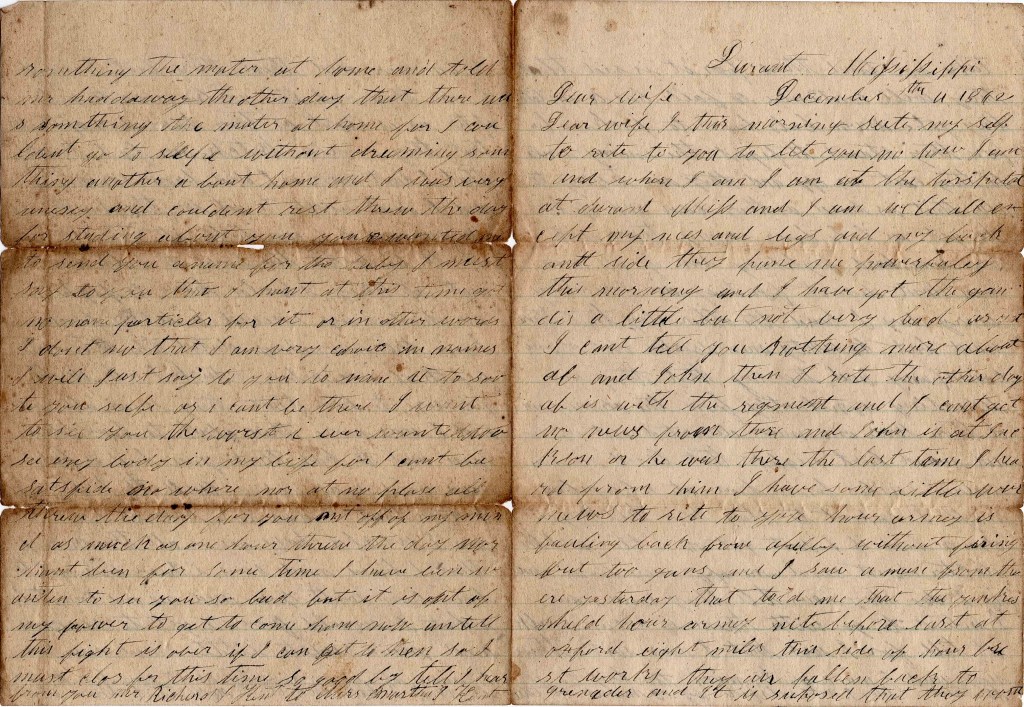 Durant Missippi
Dear wife December th 11 1862
Dear wife I this morning seete my self
to rite to you to let you no how I am
and where I am I am at the hospital
at durand Miss and I am well all ex
cept my nees and legs and my back
and side they pane me powerfuley
this morning and I have got the yan
dis a little but not very bad as yet
I cant tell you nothing more about
ab and John then I rote the other day
ab is with the regment and I cant get
no news from there and John is at Jac
kson or he was there the last time I hea
rd from him I have some little wor
news to rite to you hour armey is
fauling back from without firing
but two guns and I saw a man from the
ere yesterday that told me that the yankes
sheld hour armey nite before last at
oxford eight miles this side of hour bre
st works they air fallen back to
grenader and it is suposed that they
something the mater at home and told
mr haddaway the other day that there wa
s somthing the mater at home for I cou
ldent go to sleepe without dreming som
thing another a bout home and I was very
uneasy and couldent rest threw the day
for studing about you you wanted me
to send you a name for the baby I must
say to you that I hant at this time got
no name particler for it or in other words
I dont no that I am very choice in names
I will Just say to you to name it to soo
te you selfe as i cant be there I want
to see you the worst i ever wanted too
see eny body in my life for I cant be
satsfide no where nor at no place all
threw the day for you ant off of my min
d as much as one hour threw the day nor
hant ben for some time I have ben so
anten to see you so bad but it is out of
my power to get to come home now untill
this fight is over if I can get to then so I
must clos for this time so good by tell I hear
from you Mr Richard Hunt to Mrs Martha J Hunt